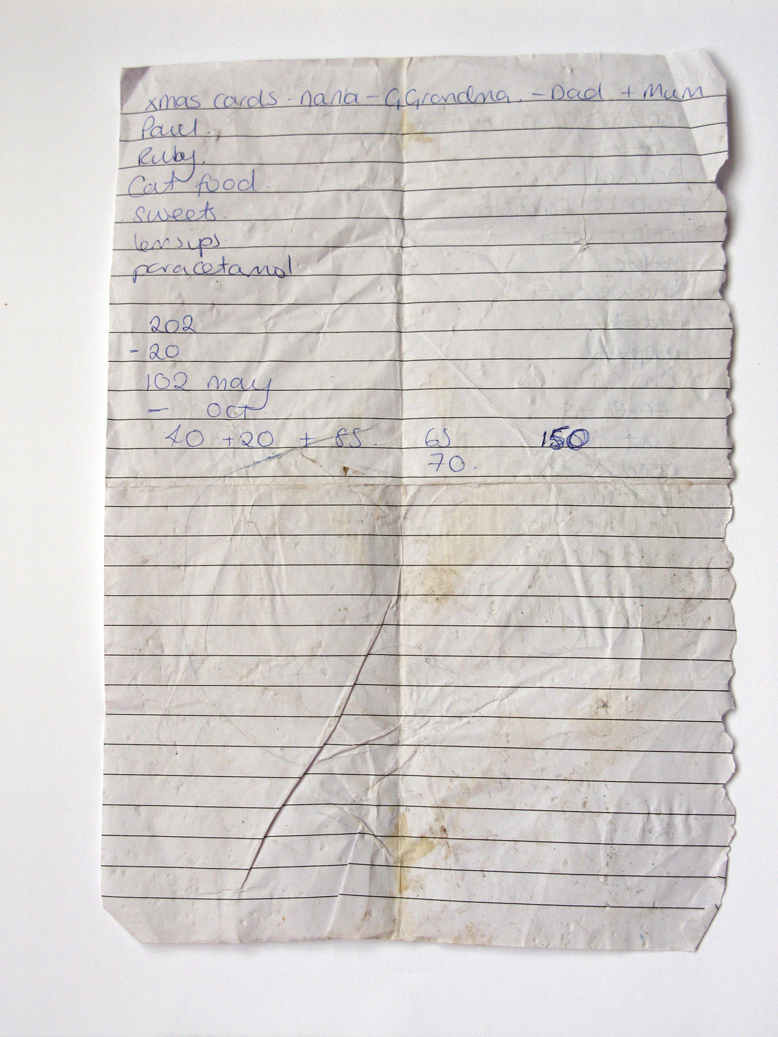 xmas cards - nana - G,Grandma. - Dad + Mum
Paul.
Ruby.
Cat food
sweets.
lemsips
paracetamol
202
- 20
102 may
- Oct
40 + 20 + 85. 65 150
70.